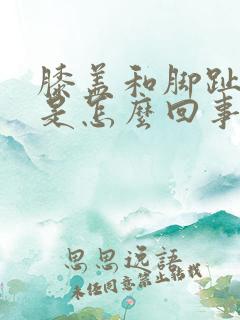 膝盖和脚趾
是怎麼回事
思思逸語
未经同意禁止转载